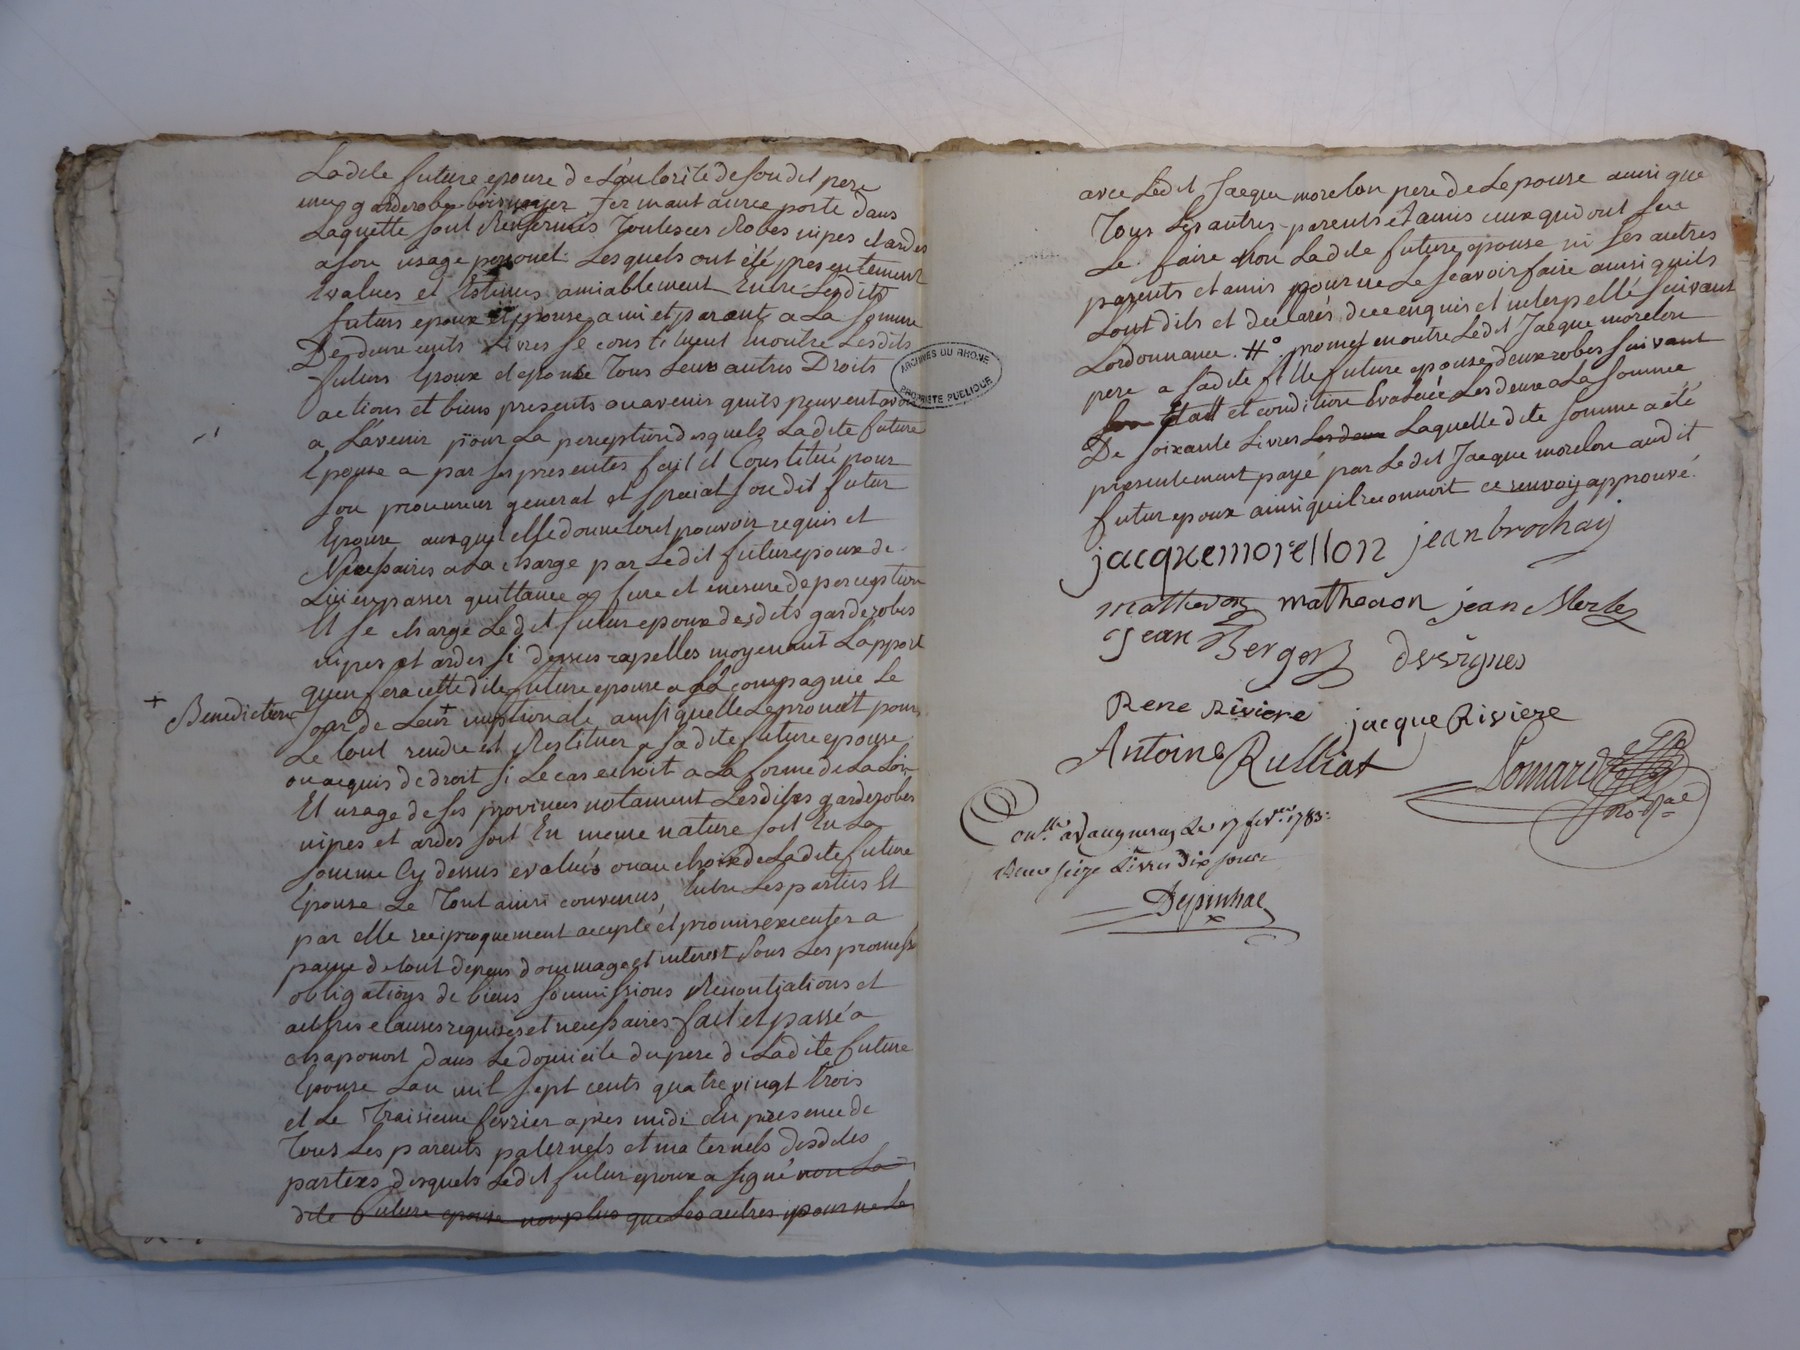 Ladite future epouse de L'authorité de sondit pere
une garderobe bois noyer fermant a une porte dans
Laquelle sont Renfermés Toutes ces Robes nipes et ardes
a son usage personel. Lesquels ont été presentement
Evalues et Estimes amiablement Entre Lesdits
futurs epoux et epouse amis et parents a La somme
De deux cents Livres se constituent en outre Lesdits
futurs Epoux et epouse Tous Leurs autres Droits
actions et biens presents ou avenir quils peuvent avoir
a L'avenir pour La perception desquels Ladite future
Epouse a par ses presentes fait et Constitué pour
son procureur general et special sondit futur
Epoux auxquel elle donne tout pouvoir requis et
Necessaires a La charge par Ledit futur epoux de
Lui en passer quittance a fure et mesure de perception
Et se charge Ledit futur epoux desdits garderobes
nipes et ardes si dessus rapelles moyenant Lapport
quen fera cette dite future epouse a sa compagnie Le
+ Benediction
jour de Leur + nuptionale ainsi quelle Le promet pour
Le tout rendre et Restituer a sadite future epouse
ou acquis de droit si Le cas echoit a La forme de La Loi
Et usage de ses provinces notament Lesdites garderobes
nipes et ardes soit En meme nature soit En La
somme Cy dessus evalués ou au choix de Ladite future
Epouse Le Tout ainsi convenus, Entre Les parties Et
par elle reciproquement accepté et promis executer a
paine de tout depens dommage et interest sous Les promesse
obligations de biens soumissions Renontiations et
autres clauses requises et necessaires fait et passé a
chaponost dans Le domicile du pere de Ladite future
Epouse Lan mil sept cents quatre vingt trois
et Le Traisieme fevrier apres midi En presence de
Tous Les parents paternels et maternels desdites
parties desquels Ledit futur epoux a signé non La
dite future epouse non plus que Les autres pour ne Le
avec Ledit Jacque morelon pere de Lepouse ainsi que
Tous Les autres parents et amis ceux qui ont sceu
Le faire Non Ladite future epouse ni Les autres
parents et amis pour ne Le scavoir faire ainsi quils
Lont dits et declarés de ce enquis et interpellé suivant
Lordonnance. #° promet en outre Ledit Jacque morelon
pere a sadite fille future epouse deux robes suivant
son Etatt et condition Evaluée Les deux a La somme
De soixante Livres Les deux Laquelle dite somme a été
presentement payé par Ledit Jacque morelon audit
futur epoux ainsi quil reconnoit ce renvoy approuvé.
jacquemorellon jean brochay
matheron matheron jean Merle
jean Berger desvignes
Rene Riviere jacque Riviere
Antoine Rulliat
not. Ral
Con.lle a Vaugneray Le 17 fev.er 1783:
Reçu seize Livres dix sous
Depinhac
ARCHIVES DU RHONE
PROPRIETE PUBLIQUE